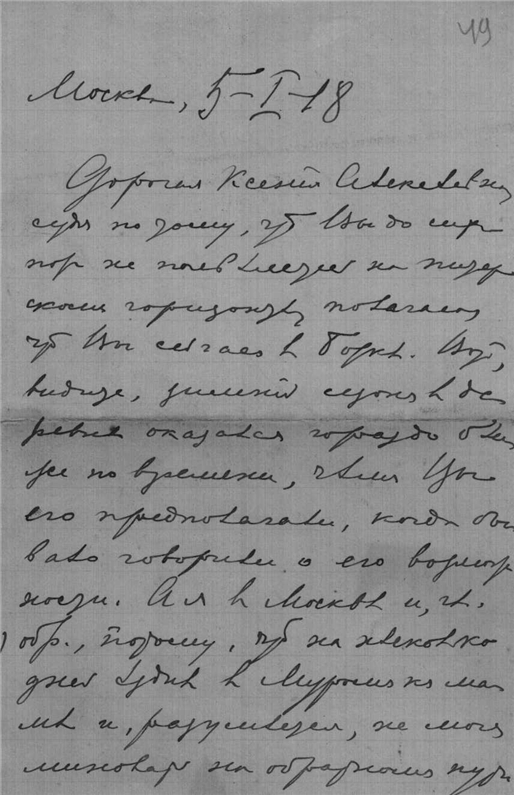 49
Москва, 5-I-18
Дорогая Ксения Алексеевна,
судя по тому, чт Вы до сих
пор не появляетесь на питер
ском горизонте, полагаю,
чт Вы сейчас в Борке. Вот,
видите, зимний сезон в де
ревне оказался гораздо бли
же по времени, чѣм Вы
его предполагали, когда бы
вало говорили о его возмож
ности. А я в Москвѣ и, т.
обр., потому, чт на несколько
дней ѣздил в Муром к ма
мѣ и, разумѣется, не мог
миновать на обратном пути